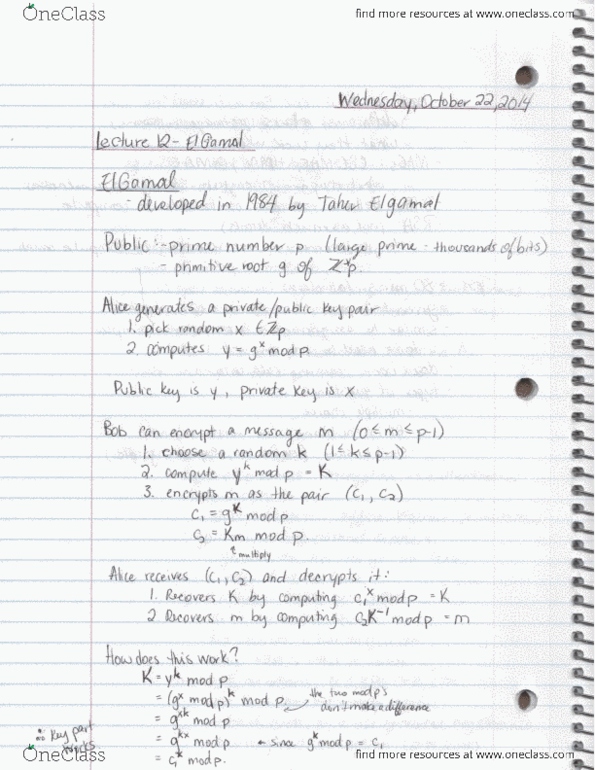 OneClass
find more resources at www.oneclass.com
Wednesday, October 22, 2014
Lecture 12 - ElGamal
ElGamal
- developed in 1984 by Taher Elgamal
Public :- prime number p (large prime - thousands of bits)
- primitive root g of ℤ*p.
Alice generates a private/public key pair
1. pick random x ∈ ℤp
2. computes y = g^x mod p.
Public key is y, private key is x
Bob can encrypt a message m (0 ≤ m ≤ p-1)
1. choose a random k (1 ≤ k ≤ p-1)
2. compute y^k mod p = K
3. encrypts m as the pair (C1, C2)
C1 = g^k mod p
C2 = Km mod p.
↑ multiply
Alice receives (C1, C2) and decrypts it:
1. Recovers K by computing C1^x mod p = K
2 Recovers m by computing C2K^-1 mod p = m
How does this work?
K = y^k mod p
= (g^x mod p)^k mod p. the two mod p's don't make a difference
= g^xk mod p
∴ Key part works
= g^kx mod p ← since g^k mod p = C1
= C1^x mod p.
OneClass
find more resources at www.oneclass.com